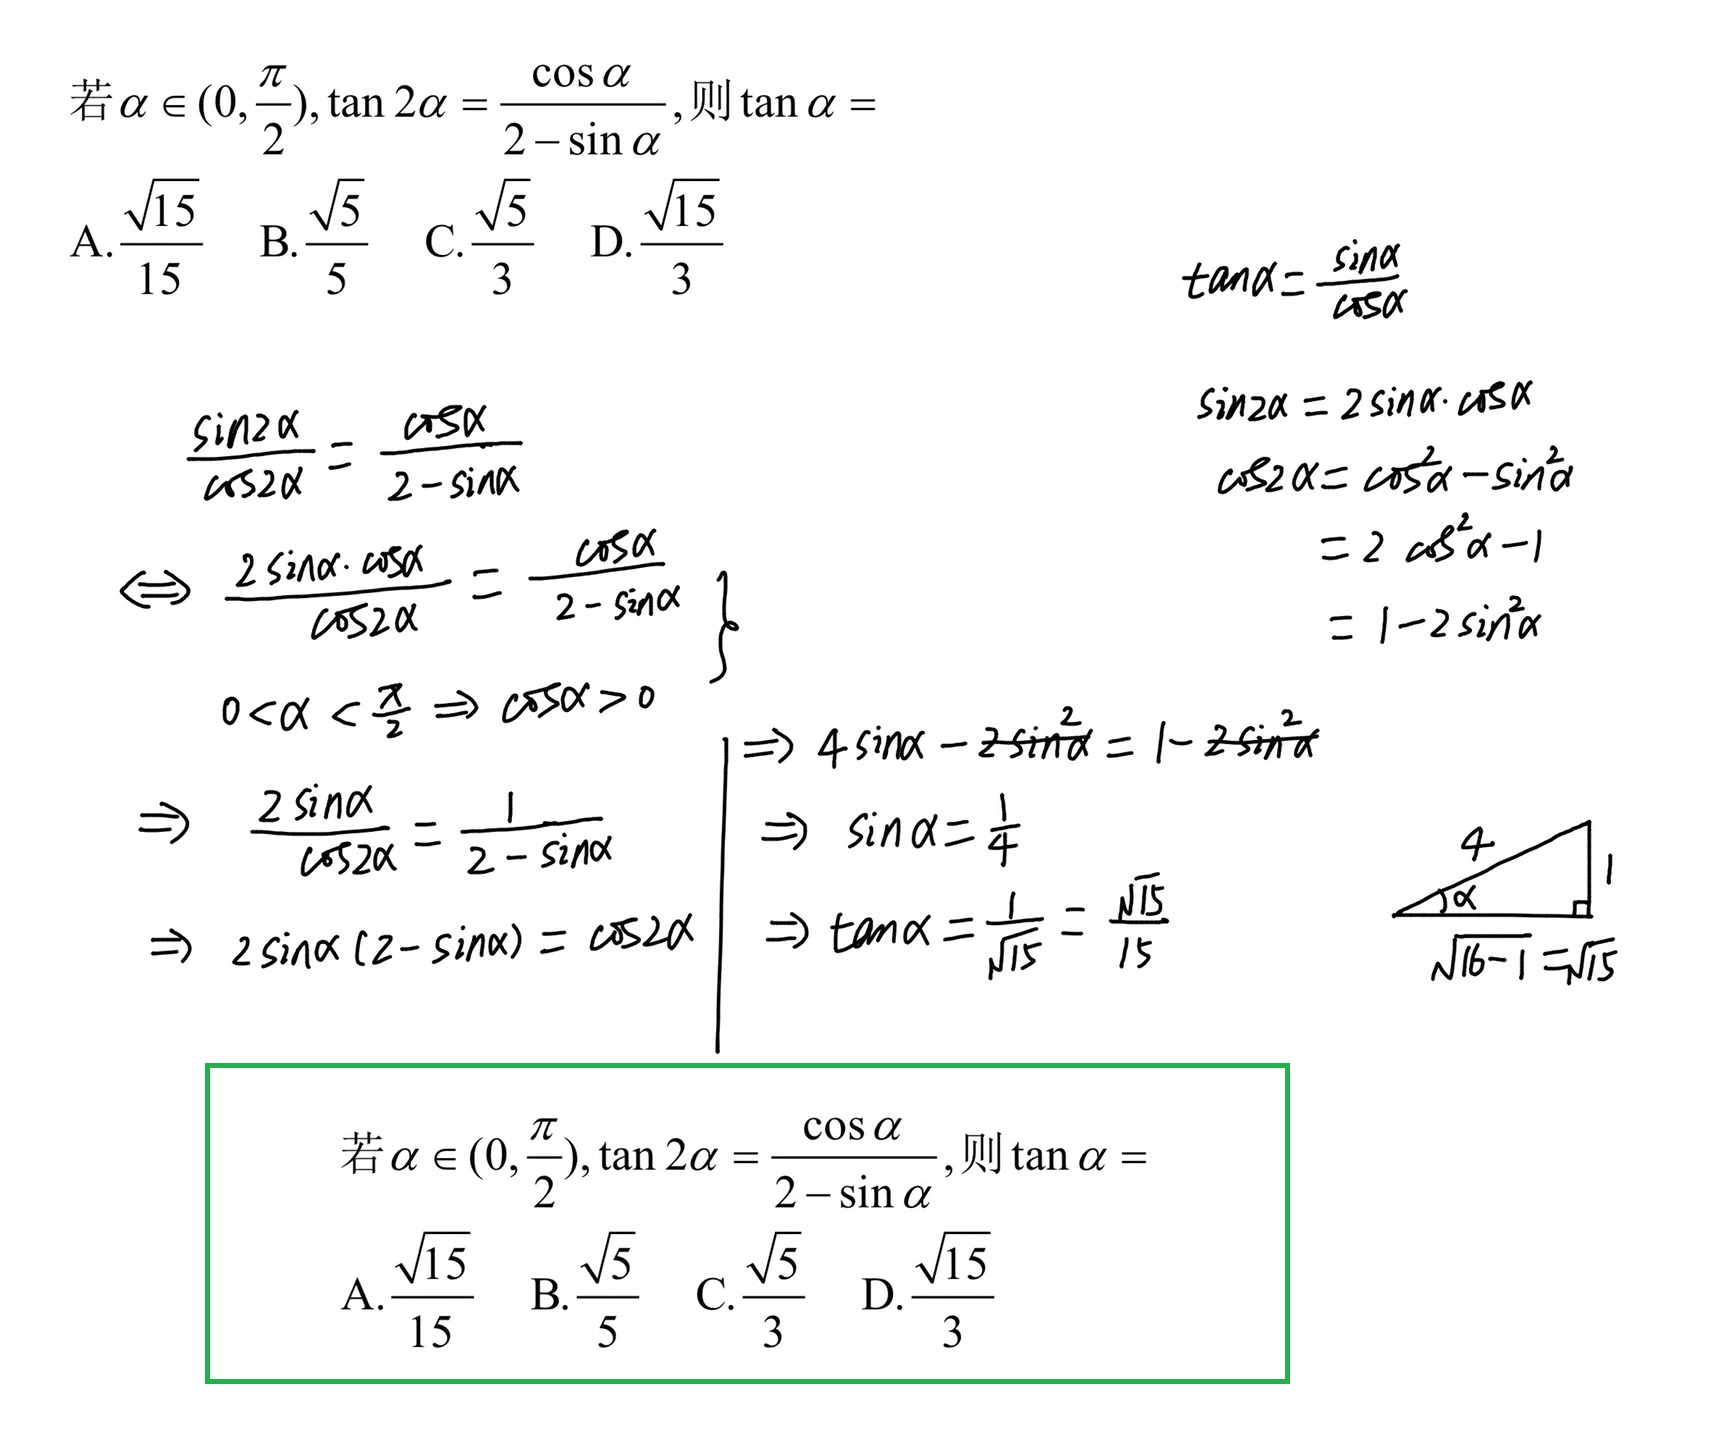 若α∈(0,π/2),tan 2α = cos α/(2−sin α),则 tan α =
A. √15/15 B. √5/5 C. √5/3 D. √15/3
tanα = sinα/cosα
sin2α = 2sinα·cosα
cos2α = cos²α − sin²α
= 2cos²α − 1
= 1 − 2sin²α
sin2α/cos2α = cosα/(2−sinα)
⇔ 2sinα·cosα/cos2α = cosα/(2−sinα) }
0<α<π/2 ⇒ cosα>0
⇒ 2sinα/cos2α = 1/(2−sinα)
⇒ 2sinα(2−sinα) = cos2α
⇒ 4sinα − 2sin²α = 1 − 2sin²α
⇒ sinα = 1/4
⇒ tanα = 1/√15 = √15/15
4
1
α
√16−1 = √15
若α∈(0,π/2),tan 2α = cos α/(2−sin α),则 tan α =
A. √15/15 B. √5/5 C. √5/3 D. √15/3